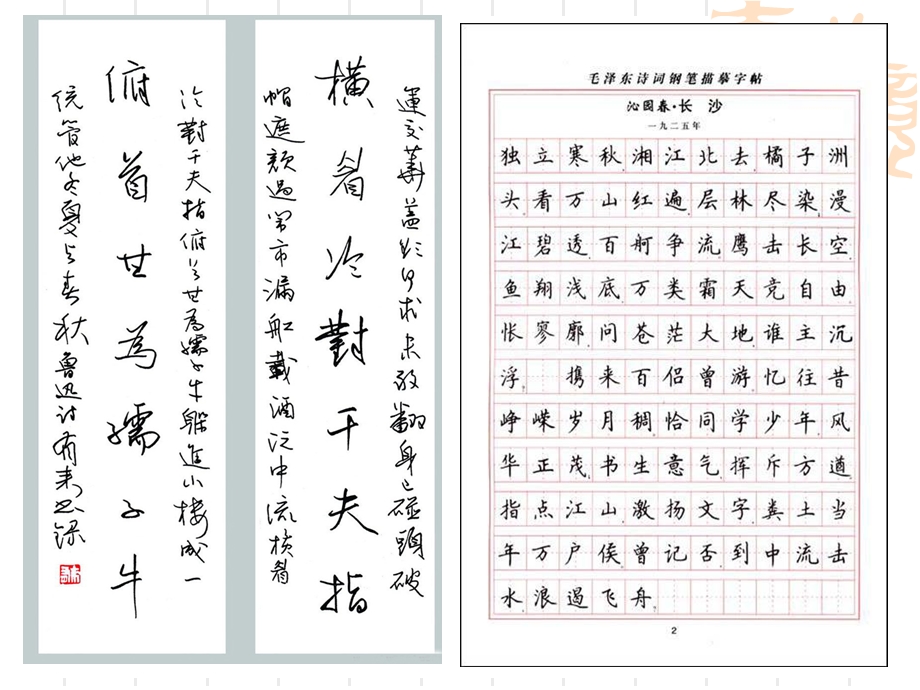 運交華蓋欲何求未敢翻身已碰頭破
橫眉冷對千夫指
帽遮顏過鬧市漏船載酒泛中流橫眉
冷對千夫指俯首甘為孺子牛躲進小樓成一
俯首甘為孺子牛
统管他冬夏与春秋 魯迅诗
毛泽东诗词钢笔描摹字帖
沁园春·长 沙
一九二五年
独立寒秋湘江北去橘子洲
头看万山红遍层林尽染漫
江碧透百舸争流鹰击长空
鱼翔浅底万类霜天竞自由
怅寥廓问苍茫大地谁主沉
浮 携来百侣曾游忆往昔
峥嵘岁月稠恰同学少年风
华正茂书生意气挥斥方遒
指点江山激扬文字粪土当
年万户侯曾记否到中流击
水浪遏飞舟
2